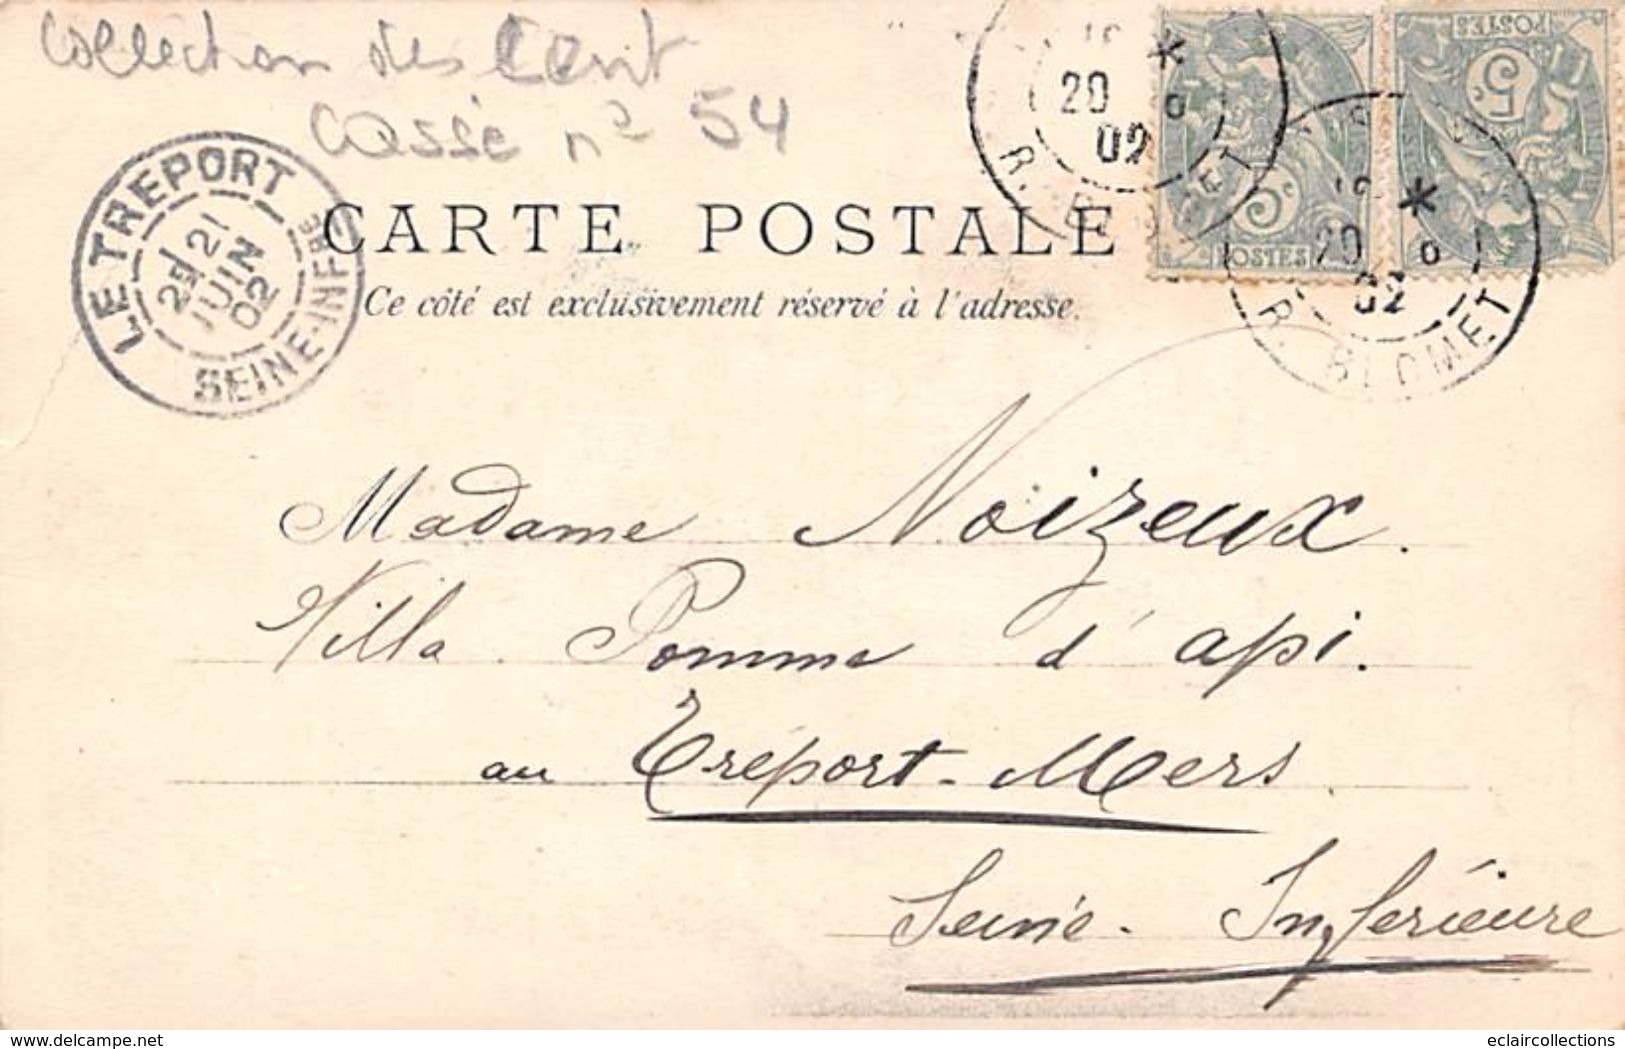 Collection des Cent
Cassé n° 54
CARTE POSTALE
Ce côté est exclusivement réservé à l'adresse.
LE TREPORT
21
JUIN
02
SEINE-INFRE
20
02
R. BLOMET
5c
POSTES
POSTES
5c
20
02
R. BLOMET
Madame Noizeux.
Villa Pomme d'api.
au Tréport-Mers
Seine-Inférieure
delcampe.net
eclaircollections